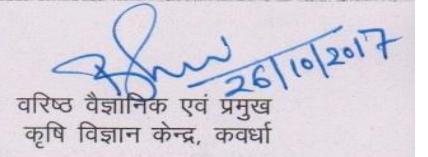 26/10/2017
वरिष्ठ वैज्ञानिक एवं प्रमुख
कृषि विज्ञान केन्द्र, कवर्धा